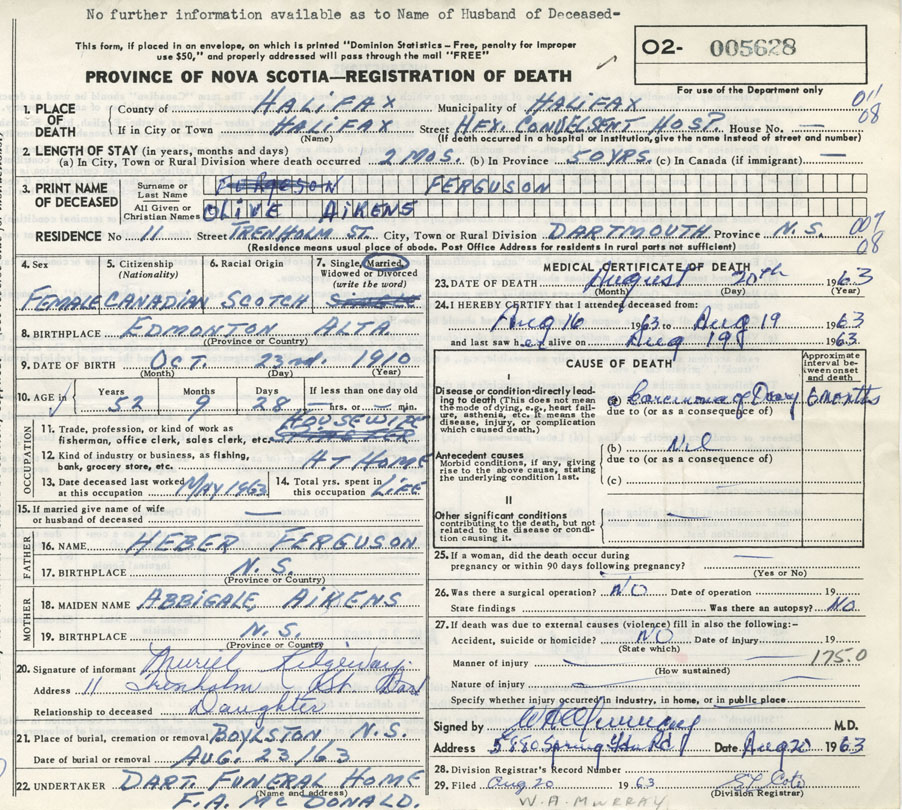 No further information available as to Name of Husband of Deceased-
This form, if placed in an envelope, on which is printed "Dominion Statistics – Free, penalty for improper
use $50," and properly addressed will pass through the mail "FREE"
O2- 005628
PROVINCE OF NOVA SCOTIA—REGISTRATION OF DEATH
For use of the Department only
1. PLACE OF DEATH County of HALIFAX Municipality of HALIFAX 011
If in City or Town HALIFAX Street HFX. CONVELSENT HOSP House No. — 08
(Name) (If death occurred in a hospital or institution, give the name instead of street and number)
2. LENGTH OF STAY (in years, months and days)
(a) In City, Town or Rural Division where death occurred 2 MOS. (b) In Province 50 YRS. (c) In Canada (if immigrant) —
3. PRINT NAME OF DECEASED Surname or Last Name FERGUSON
All Given or Christian Names OLIVE AIKENS
RESIDENCE No 11 Street TRENHOLM ST. City, Town or Rural Division DARTMOUTH Province N.S. 007
(Residence means usual place of abode. Post Office Address for residents in rural parts not sufficient) 08
4. Sex 5. Citizenship (Nationality) 6. Racial Origin 7. Single, Married, Widowed or Divorced (write the word)
FEMALE CANADIAN SCOTCH
8. BIRTHPLACE EDMONTON ALTA
(Province or Country)
9. DATE OF BIRTH OCT. 23rd. 1910
(Month) (Day) (Year)
10. AGE in Years Months Days If less than one day old
52 9 28 — hrs. or — min.
OCCUPATION
11. Trade, profession or kind of work as fisherman, office clerk, sales clerk, etc. HOUSEWIFE
12. Kind of industry or business, as fishing, bank, grocery store, etc. AT HOME
13. Date deceased last worked at this occupation MAY 1963 14. Total yrs. spent in this occupation LIFE
15. If married give name of wife or husband of deceased —
FATHER
16. NAME HEBER FERGUSON
17. BIRTHPLACE N.S.
(Province or Country)
MOTHER
18. MAIDEN NAME ABBIGALE AIKENS
19. BIRTHPLACE N.S.
(Province or Country)
20. Signature of informant Muriel Ridgeway
Address 11 Trenholm St. Dart
Relationship to deceased Daughter
21. Place of burial, cremation or removal BOYLSTON, N.S.
Date of burial or removal AUG. 23/63
22. UNDERTAKER DART. FUNERAL HOME
(Name and address)
F.A. McDONALD.
MEDICAL CERTIFICATE OF DEATH
23. DATE OF DEATH August 20th 1963
(Month) (Day) (Year)
24. I HEREBY CERTIFY that I attended deceased from:
Aug 16 1963 to Aug 19 1963
and last saw her alive on Aug 19 1963.
CAUSE OF DEATH
Approximate interval between onset and death
I
Disease or condition directly leading to death (This does not mean the mode of dying, e.g., heart failure, asthenia, etc. It means the disease, injury, or complication which caused death.)
(a) Carcinoma of Ovary 6 months
due to (or as a consequence of)
Antecedent causes
Morbid conditions, if any, giving rise to the above cause, stating the underlying condition last.
(b) Nil
due to (or as a consequence of)
(c)
II
Other significant conditions
contributing to the death, but not related to the disease or condition causing it. —
25. If a woman, did the death occur during pregnancy or within 90 days following pregnancy? —
(Yes or No)
26. Was there a surgical operation? NO Date of operation 19
State findings Was there an autopsy? NO.
27. If death was due to external causes (violence) fill in also the following:–
Accident, suicide or homicide? NO Date of injury 19
(State which)
Manner of injury — 175.0
(How sustained)
Nature of injury —
Specify whether injury occurred in industry, in home, or in public place
Signed by M.D.
Address 5880 Spring Gdn Rd Date Aug 20 1963
28. Division Registrar's Record Number
29. Filed Aug 20 1963
(Division Registrar)
W.A. MURRAY